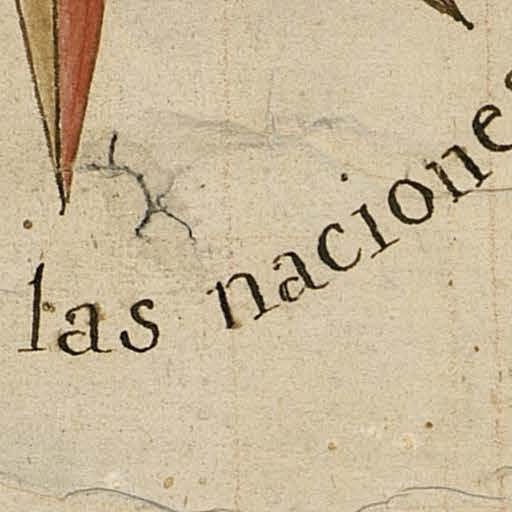 las naciones